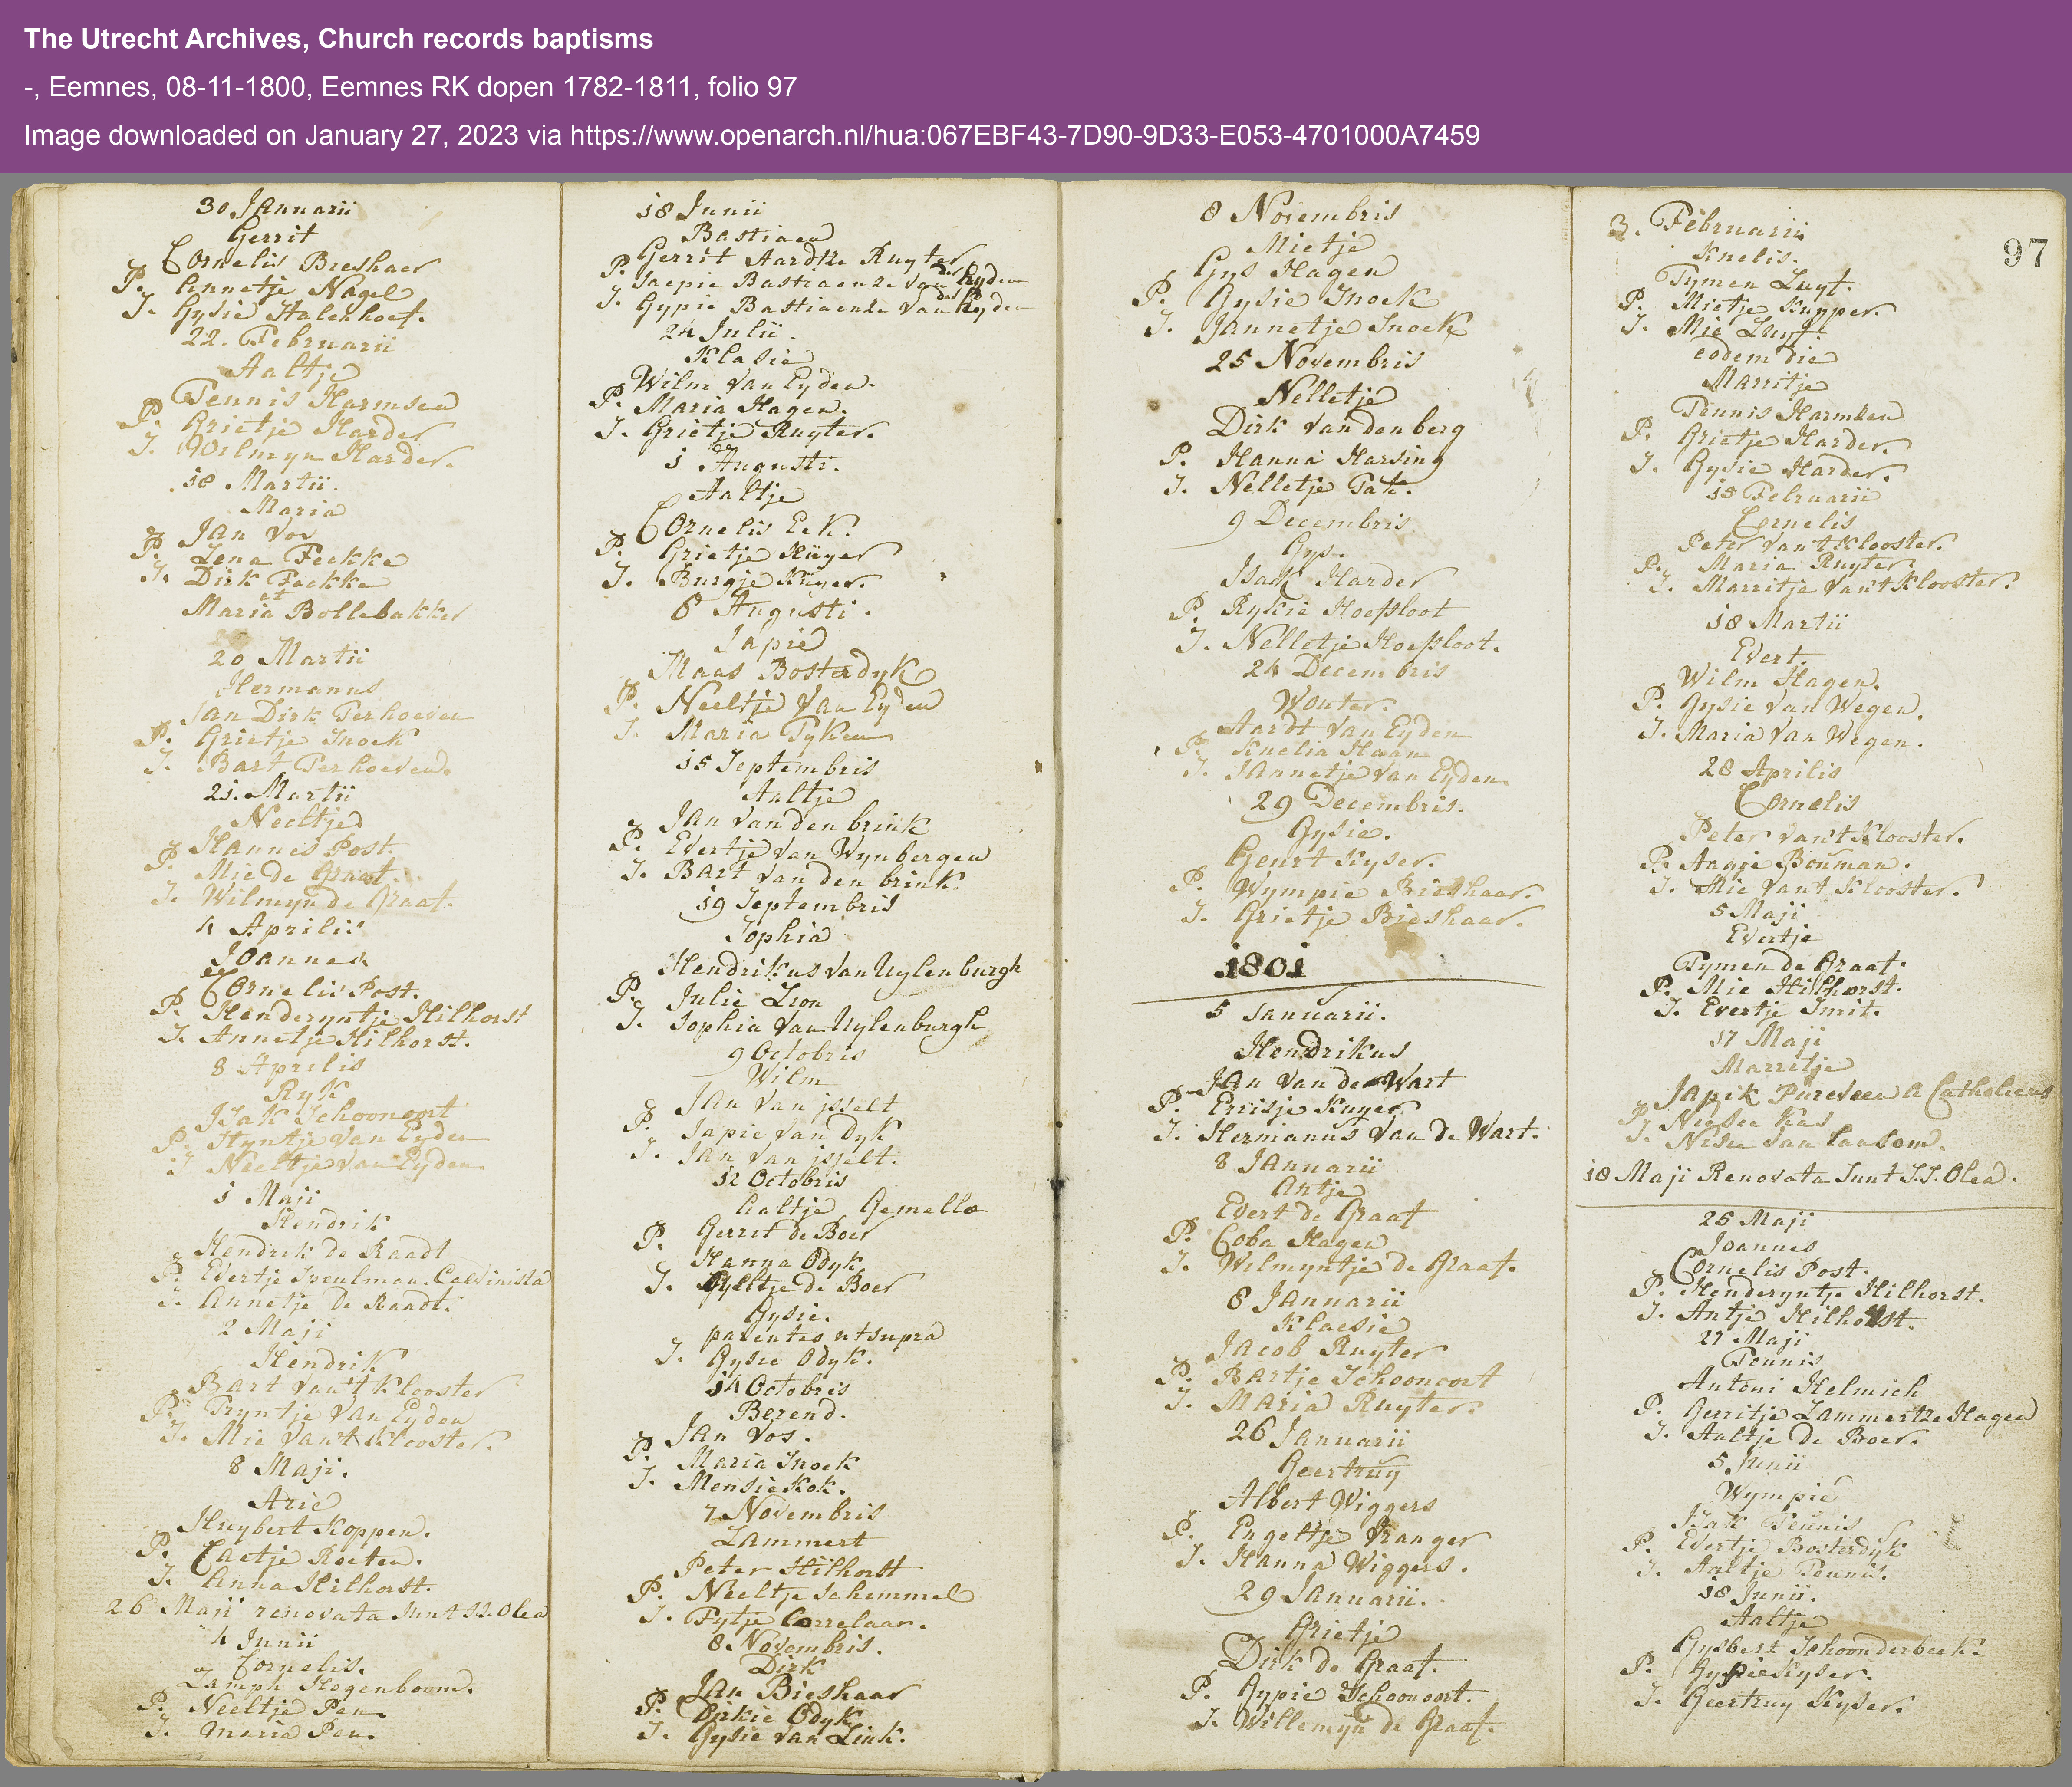 The Utrecht Archives, Church records baptisms
-, Eemnes, 08-11-1800, Eemnes RK dopen 1782-1811, folio 97
Image downloaded on January 27, 2023 via https://www.openarch.nl/hua:067EBF43-7D90-9D33-E053-4701000A7459
30 Januarii
Gerrit
Cornelis Breshaer
P. Annetje Nagel
S. Gysie Stalenhoef.
22. Februarii
Aaltje
Tennis Harmsen
P. Grietje Harder
S. Wilmyn Harder.
18 Martii.
Maria
Jan Vos
P. Lena Feekke
S. Dirk Feekke
et
Maria Bollebakker
20 Martii
Hermanus
Jan Dirk Terhoeven
P. Grietje Snoek
S. Bart Terhoeven.
21. Martii
Neeltje
Hannes Post.
P. Mie de Graat.
S. Wilmyn de Graaf.
4 Aprilis
Joannes
Cornelis Post.
P. Henderyntje Hilhorst
S. Annetje Hilhorst.
8 Aprilis
Ryk
Isak Schoonoort
P. Styntje van Eyden
S Neeltje van Eyden
1 Maji
Hendrik
Hendrik de Raadt
P. Evertje Calvinista
S. Annetje de Raadt.
2 Maji
Hendrik
Bart van't Klooster
P. Tryntje van Eyden
S. Mie van't Klooster.
8 Maji.
Arie
Huybert Koppen.
P. Caetje Roeten.
S. Anna Hilhorst.
26 Maji renovata sunt S.S. Olea
4 Junii
Cornelis.
Lamph Hogenboom.
P. Neeltje Pen
S. Maria Pen.
18 Junii
Bastiaen
Gerrit Aardtze Ruyter
P. Jaepie Bastiaenze van der Eyden
S. Gypie Bastiaenze van der Eyden
24 Julii.
Klasie
Wilm van Eyden.
P. Maria Hagen.
S. Grietje Ruyter.
1 Augusti.
Aaltje
Cornelis Eek.
P. Grietje Küyer
S. Burgje Küyer.
8 Augusti.
Japie
Maas Bosterdyk
P. Neeltje van Eyden
S. Maria Tyken
15 Septembris
Aaltje
Jan van den brink
P. Evertje van Wynbergen
S. Bart van den brink.
19 Septembris
Sophia
Hendrikus van Uylenburgh
P. Julie Lion
S. Sophia van Uylenburgh
9 Octobris
Wilm
Jan van jsselt
P. Japie van Dyk
S. Jan van jsselt.
12 Octobris
Aaltje Gemella
P. Gerrit de Boer
Hanna Odyk
S. de Boer
Gysie.
parentes ut supra
S. Gysie Odyk.
14 Octobris
Berend.
Jan Vos.
P. Maria Snoek
S. Mensie Kok.
7 Novembris
Lammert
Peter Hilhorst
P. Neeltje Schemmel
S. Fytje Correlaar.
8 Novembris.
Dirk
Jan Bieshaar
P. Odyk
S. Gysie van Link.
8 Novembris
Mietje
Gys Hagen
P. Gysie Snoek
S. Jannetje Snoek
25 Novembris
Nelletje
Dirk van den berg
P. Hanna Harsing
S. Nelletje Tak.
9 Decembris
Gys.
Isack Harder
P. Rykie Hoefsloot
S. Nelletje Hoefsloot.
24 Decembris
Wouter.
Aardt van Eyden
P. Knelia Haan
S. Jannetje van Eyden.
29 Decembris.
Gysie.
Geurt Kyser.
P. Wympie Bieshaar.
S. Grietje Bieshaar.
1801
5 Januarii.
Hendrikus
Jan van de Wart
P. Errisje Kuyer
S. Hermanus van de Wart.
8 Januarii
Antje
Evert de Graaf
P. Coba Hagen
S. Wilmyntje de Graaf.
8 Januarii
Klaesie
Jacob Ruyter
P. Bartje Schoonoort
S. Maria Ruyter.
26 Januarii
Geertruy
Albert Wiggers
P. Engeltje Kranger
S. Hanna Wiggers.
29 Januarii.
Grietje
Dirk de Graaf.
P. Gypie Schoonoort.
S. Willemyn de Graaf.
97
3. Februarii
Knelis.
Tymen Luyt.
P. Mietje Kuyper.
S. Mie Luyt.
eodem die
Marritje
Tennis Harmsen
P. Grietje Harder.
S. Gysie Harder.
15 Februarii
Cornelis
Peter van't Klooster.
P. Maria Ruyter
S. Marritje van't Klooster.
18 Martii
Evert.
Wilm Hagen.
P. Gysie van Wegen.
S. Maria van Wegen.
28 Aprilis
Cornelis
Peter van't Klooster.
P. Aagje Bouman.
S. Mie van't Klooster.
5 Maji
Evertje
Tymen de Graaf.
P. Mie Hilhorst.
S. Evertje Smit.
17 Maji
Marretje
Japik Pureveen A Catholicus
P. Niesen Kas
S. Nisie van Lansom.
18 Maji Renovata Sunt S.S. Olea.
25 Maji
Joannes
Cornelis Post.
P. Henderyntje Hilhorst.
S. Antje Hilhorst.
27 Maji
Teunis
Antoni Helmich
P. Gerritje Lammertze Hagen
S. Aaltje de Boer.
5 Junii
Wympie
Isak Teunis
P. Evertje Bosterdyk
S. Aaltje Teunis.
18 Junii.
Aaltje
Gysbert Schoonderbeek.
P. Gysie Kyser.
S. Geertruy Kyser.